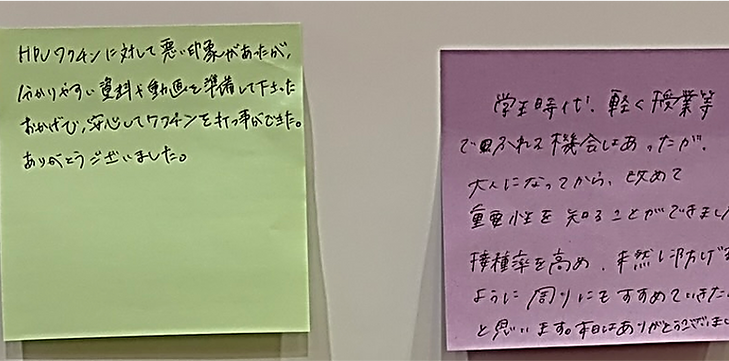 HPVワクチンに対して悪い印象があったが、
分かりやすい資料や動画を準備して下さった
おかげで、安心してワクチンを打つ事ができた。
ありがとうございました。
学生時代、軽く授業等
で触れる機会はあったが、
大人になってから、改めて
重要性を知ることができまし
接種率を高め、未然に防げ
ように周りにもすすめていきた
と思います。本日はありがとうございまし